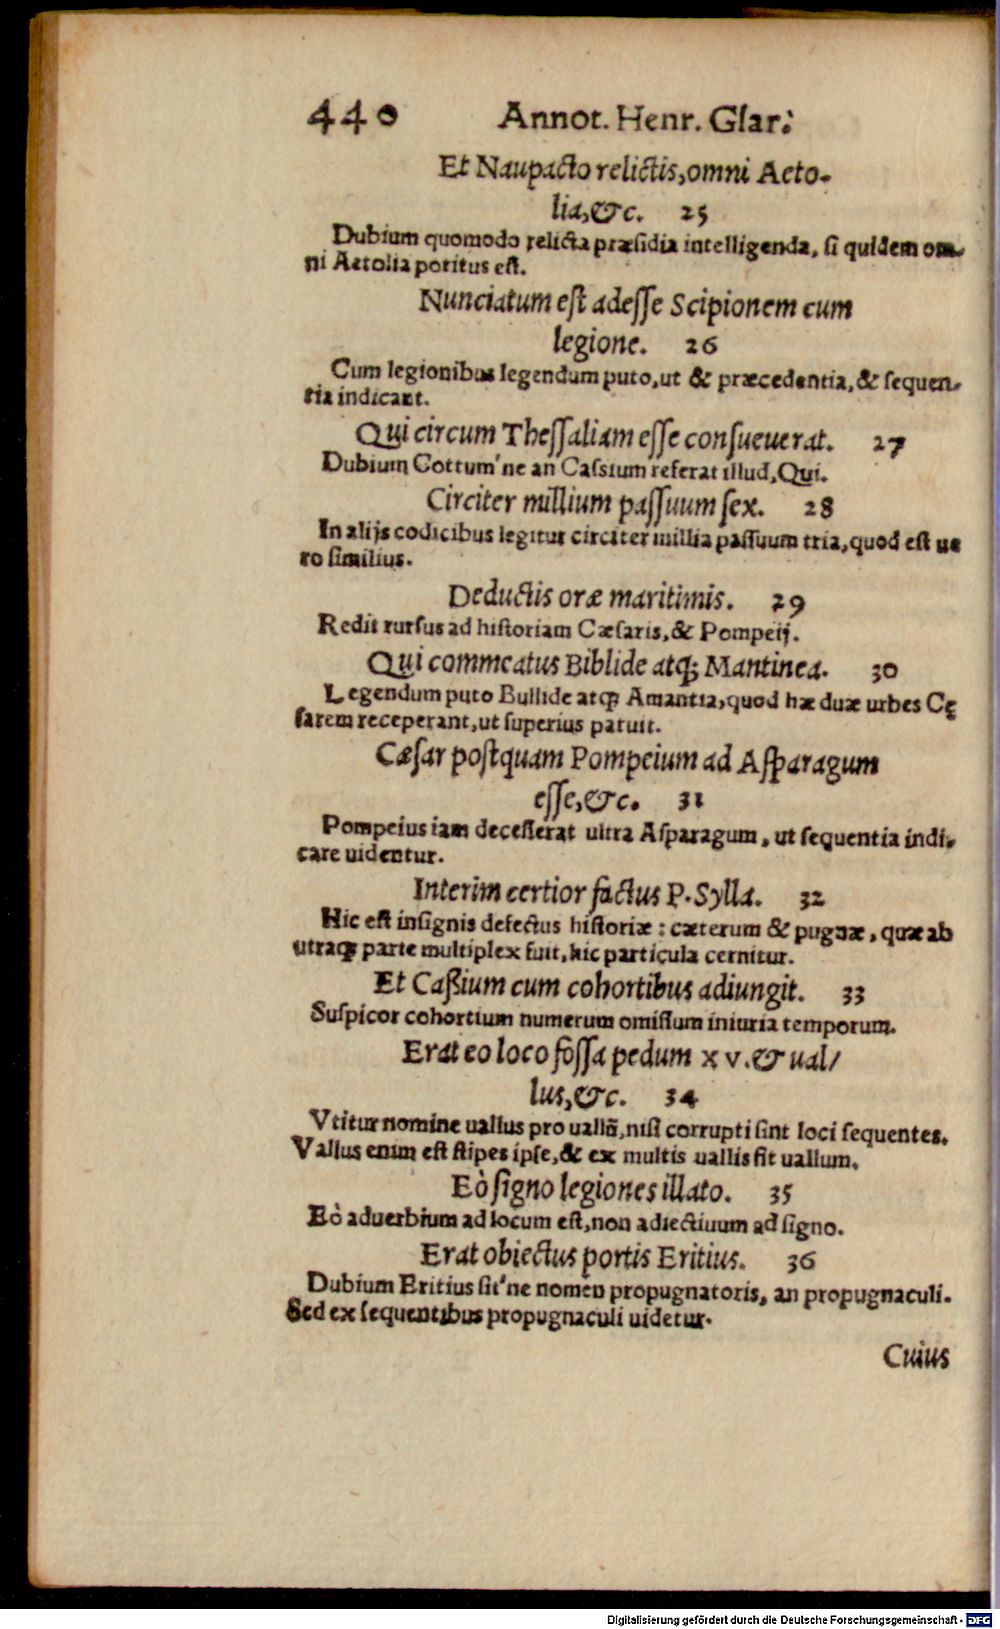 440 Annot. Henr. Glar:
Et Naupacto relictis, omni Aeto-
lia, &c. 25
Dubium quomodo relicta præsidia intelligenda, si quidem om-
ni Aetolia potitus est.
Nunciatum est adesse Scipionem cum
legione. 26
Cum legionibus legendum puto, ut & præcedentia, & sequen-
tia indicant.
Qui circum Thessaliam esse consueuerat. 27
Dubium Cottum'ne an Cassium referat illud, Qui.
Circiter millium passuum sex. 28
In alijs codicibus legitur circiter millia passuum tria, quod est ue
ro similius.
Deductis oræ maritimis. 29
Redit rursus ad historiam Cæsaris, & Pompeij.
Qui commeatus Biblide atq; Mantinea. 30
Legendum puto Bullide atq; Amantia, quod hæ duæ urbes Cę
sarem receperant, ut superius patuit.
Cæsar postquam Pompeium ad Asparagum
esse, &c. 31
Pompeius iam decesserat ultra Asparagum, ut sequentia indi-
care uidentur.
Interim certior factus P. Sylla. 32
Hic est insignis defectus historiæ: cæterum & pugnæ, quæ ab
utraq; parte multiplex fuit, hic particula cernitur.
Et Caßium cum cohortibus adiungit. 33
Suspicor cohortium numerum omissum iniuria temporum.
Erat eo loco fossa pedum xv. & ual/
lus, &c. 34
Vtitur nomine uallus pro uallū, nisi corrupti sint loci sequentes.
Vallus enim est stipes ipse, & ex multis uallis fit uallum.
Eò signo legiones illato. 35
Eò aduerbium ad locum est, non adiectiuum ad signo.
Erat obiectus portis Eritius. 36
Dubium Eritius sit'ne nomen propugnatoris, an propugnaculi.
Sed ex sequentibus propugnaculi uidetur.
Cuius
Digitalisierung gefördert durch die Deutsche Forschungsgemeinschaft - DFG